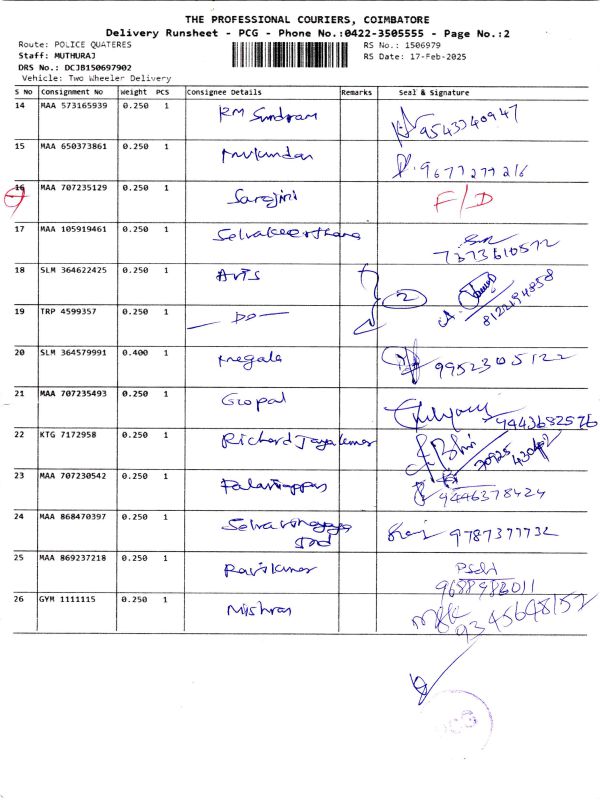 THE PROFESSIONAL COURIERS, COIMBATORE
Delivery Runsheet - PCG - Phone No.:0422-3505555 - Page No.:2
Route: POLICE QUATERES RS No.: 1506979
Staff: MUTHURAJ RS Date: 17-Feb-2025
DRS No.: DCJB150697902
Vehicle: Two Wheeler Delivery
S No Consignment No Weight PCS Consignee Details Remarks Seal & Signature
14 MAA 573165939 0.250 1 RM Sundram 9543340947
15 MAA 650373861 0.250 1 Mukundan 9677277216
16 MAA 707235129 0.250 1 Sarojini F/D
17 MAA 105919461 0.250 1 Selvakeerthana 7373610572
18 SLM 364622425 0.250 1 Arts 2 8122194858
19 TRP 4599357 0.250 1 — Do —
20 SLM 364579991 0.400 1 Megala 9952305122
21 MAA 707235493 0.250 1 Gopal 9443632576
22 KTG 7172958 0.250 1 Richard Jayakumar
23 MAA 707230542 0.250 1 Palaniappan 9446378424
24 MAA 868470397 0.250 1 9787377732
25 MAA 869237218 0.250 1 Ravikumar 9688983011
26 GYM 1111115 0.250 1 Nishran 9345648152